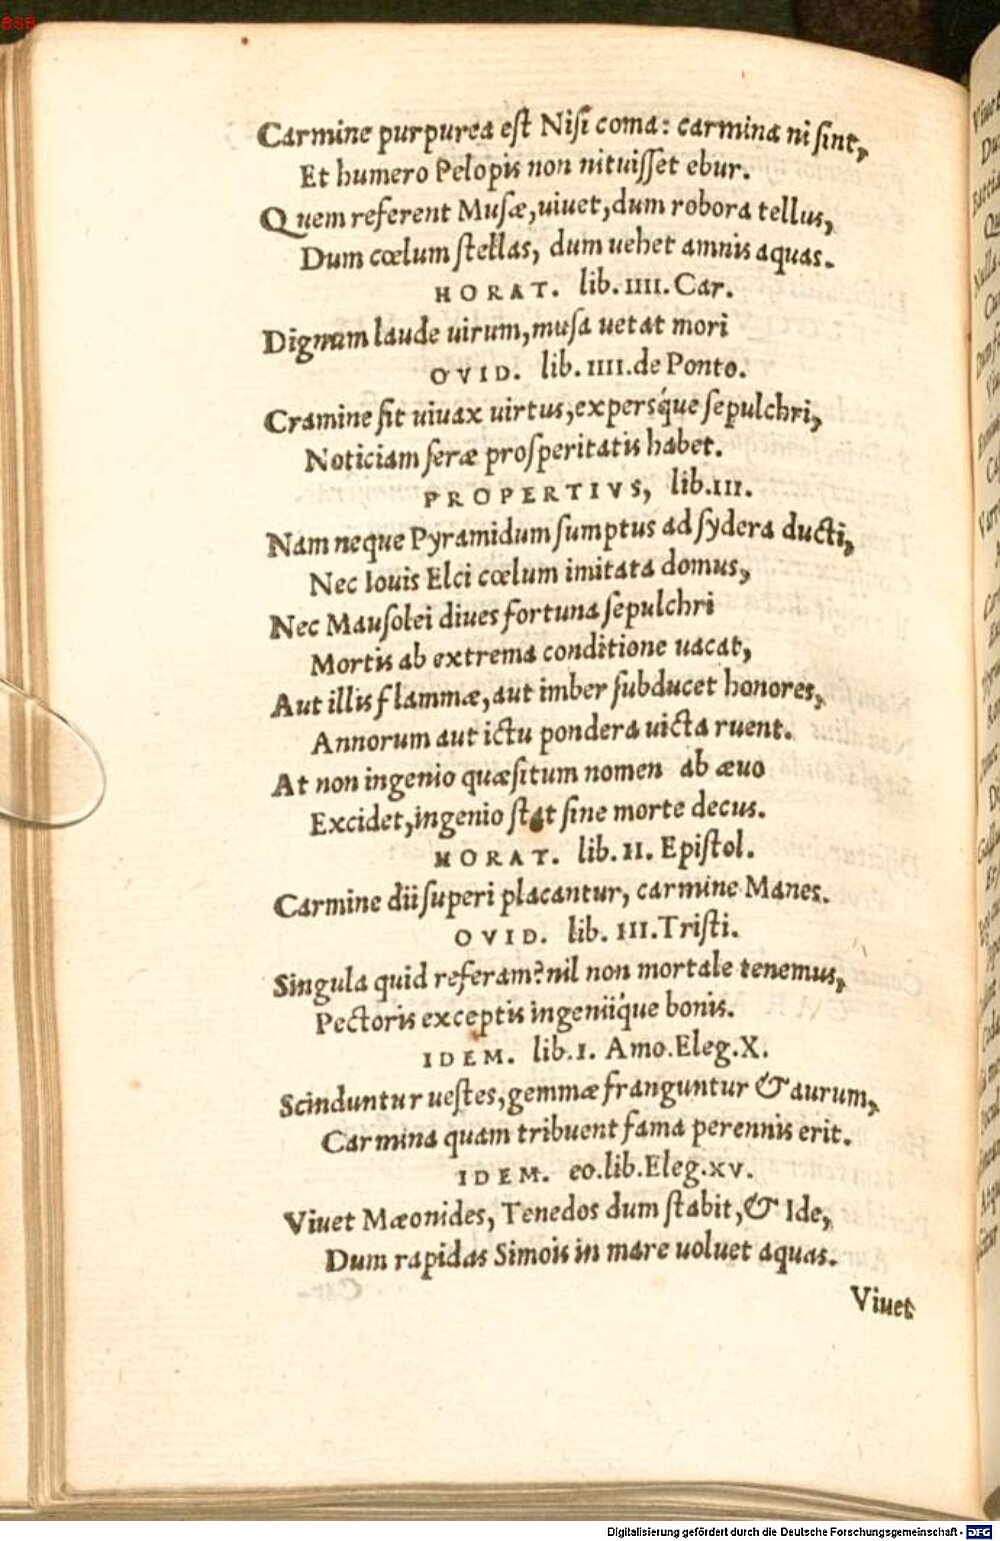 BSB
Carmine purpurea est Nisi coma: carmina ni sint,
Et humero Pelopis non nituisset ebur.
Quem referent Musæ, uiuet, dum robora tellus,
Dum cœlum stellas, dum uehet amnis aquas.
HORAT. lib. IIII. Car.
Dignum laude uirum, musa uetat mori
OVID. lib. IIII. de Ponto.
Cramine fit uiuax uirtus, expersq́ue sepulchri,
Noticiam seræ prosperitatis habet.
PROPERTIVS, lib. III.
Nam neque Pyramidum sumptus ad sydera ducti,
Nec Iouis Elei cœlum imitata domus,
Nec Mausolei diues fortuna sepulchri
Mortis ab extrema conditione uacat,
Aut illis flammæ, aut imber subducet honores,
Annorum aut ictu pondera uicta ruent.
At non ingenio quæsitum nomen ab æuo
Excidet, ingenio stat sine morte decus.
HORAT. lib. II. Epistol.
Carmine dii superi placantur, carmine Manes.
OVID. lib. III. Tristi.
Singula quid referam? nil non mortale tenemus,
Pectoris exceptis ingeniiq́ue bonis.
IDEM. lib. I. Amo. Eleg. X.
Scinduntur uestes, gemmæ franguntur & aurum,
Carmina quam tribuent fama perennis erit.
IDEM. eo. lib. Eleg. XV.
Viuet Mæonides, Tenedos dum stabit, & Ide,
Dum rapidas Simois in mare uoluet aquas.
Viuet
Digitalisierung gefördert durch die Deutsche Forschungsgemeinschaft - DFG